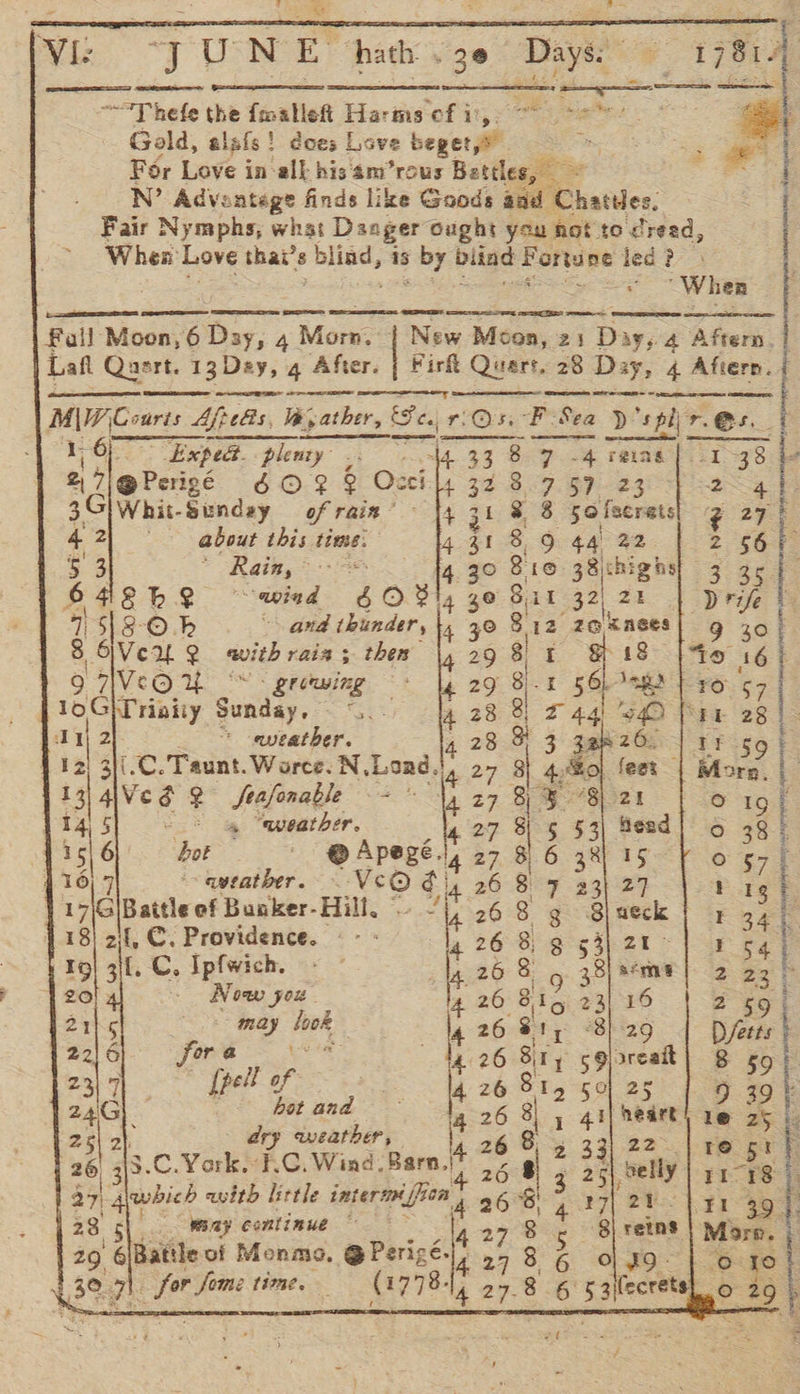 VI. JUNE hath 30 Days. 1781.
Thefe the fmalleft Harms of it,
Gold, alafs! does Love beget,
For Love in all his am'rous Battles,
N' Advantage finds like Goods and Chattles.
Fair Nymphs, what Danger ought you not to dread,
When Love that's blind, is by blind Fortune led?
When
Full Moon, 6 Day, 4 Morn. | New Moon, 21 Day, 4 Aftern.
Laft Quart. 13 Day, 4 After. | Firft Quart. 28 Day, 4 Aftern.
M|W|Courts Afpects, Weather, &c.| r.☉s. F Sea ☽'s pl| r.☉s.
1 6 Expect. plenty 4 33 8 7 4 reins 1 38
2 7 @Perigé ☌☉♀ ♀ Occi. 4 32 8 7 57 23 2 4
3 G Whit-Sunday of rain 4 31 8 8 50 fecrets 2 27
4 2 about this time. 4 31 8 9 44 22 2 56
5 3 Rain, 4 30 8 10 38 thighs 3 35
6 4 8♄♀ wind ☌☉☿ 4 30 8 11 32 21 ☽ rife
7 5 8☉♄ and thunder, 4 30 8 12 20 knees 9 30
8 6 Vc♃♀ with rain; then 4 29 8 1 8 18 10 16
9 7 Vc☉♃ growing 4 29 8 1 56 legs 10 57
10 G Trinity Sunday. 4 28 8 2 44 11 28
11 2 weather. 4 28 8 3 26 11 59
12 3 f.C. Taunt. Worce. N.Lond. 4 27 8 4 20 feet Morn.
13 4 Vc♂♀ feafonable 4 27 8 5 8 21 0 19
14 5 weather. 4 27 8 5 53 head 0 38
15 6 hot @ Apegé. 4 27 8 6 38 15 0 57
16 7 weather. Vc☉♂ 4 26 8 7 23 27 1 15
17 G Battle of Bunker-Hill. 4 26 8 8 8 neck 1 34
18 2 f. C. Providence. 4 26 8 8 53 21 1 54
19 3 f. C. Ipfwich. 4 26 8 9 38 arms 2 23
20 4 Now you 4 26 8 10 23 16 2 59
21 5 may look 4 26 8 11 8 29 ☽fetts
22 6 for a 4 26 8 11 59 breaft 8 59
23 7 fpell of 4 26 8 12 50 25 9 39
24 G hot and 4 26 8 1 41 heart 10 25
25 2 dry weather, 4 26 8 2 33 22 10 51
26 3 S.C. York. I.C. Wind. Barn. 4 26 8 3 25 belly 11 18
27 4 which with little intermiffion 4 26 8 4 17 21 11 39
28 5 may continue 4 27 8 5 8 reins Morn.
29 6 Battle of Monmo. @ Perigé. 4 27 8 6 0 19 0 10
30 7 for fome time. (1778. 4 27 8 6 53 fecrets 0 29